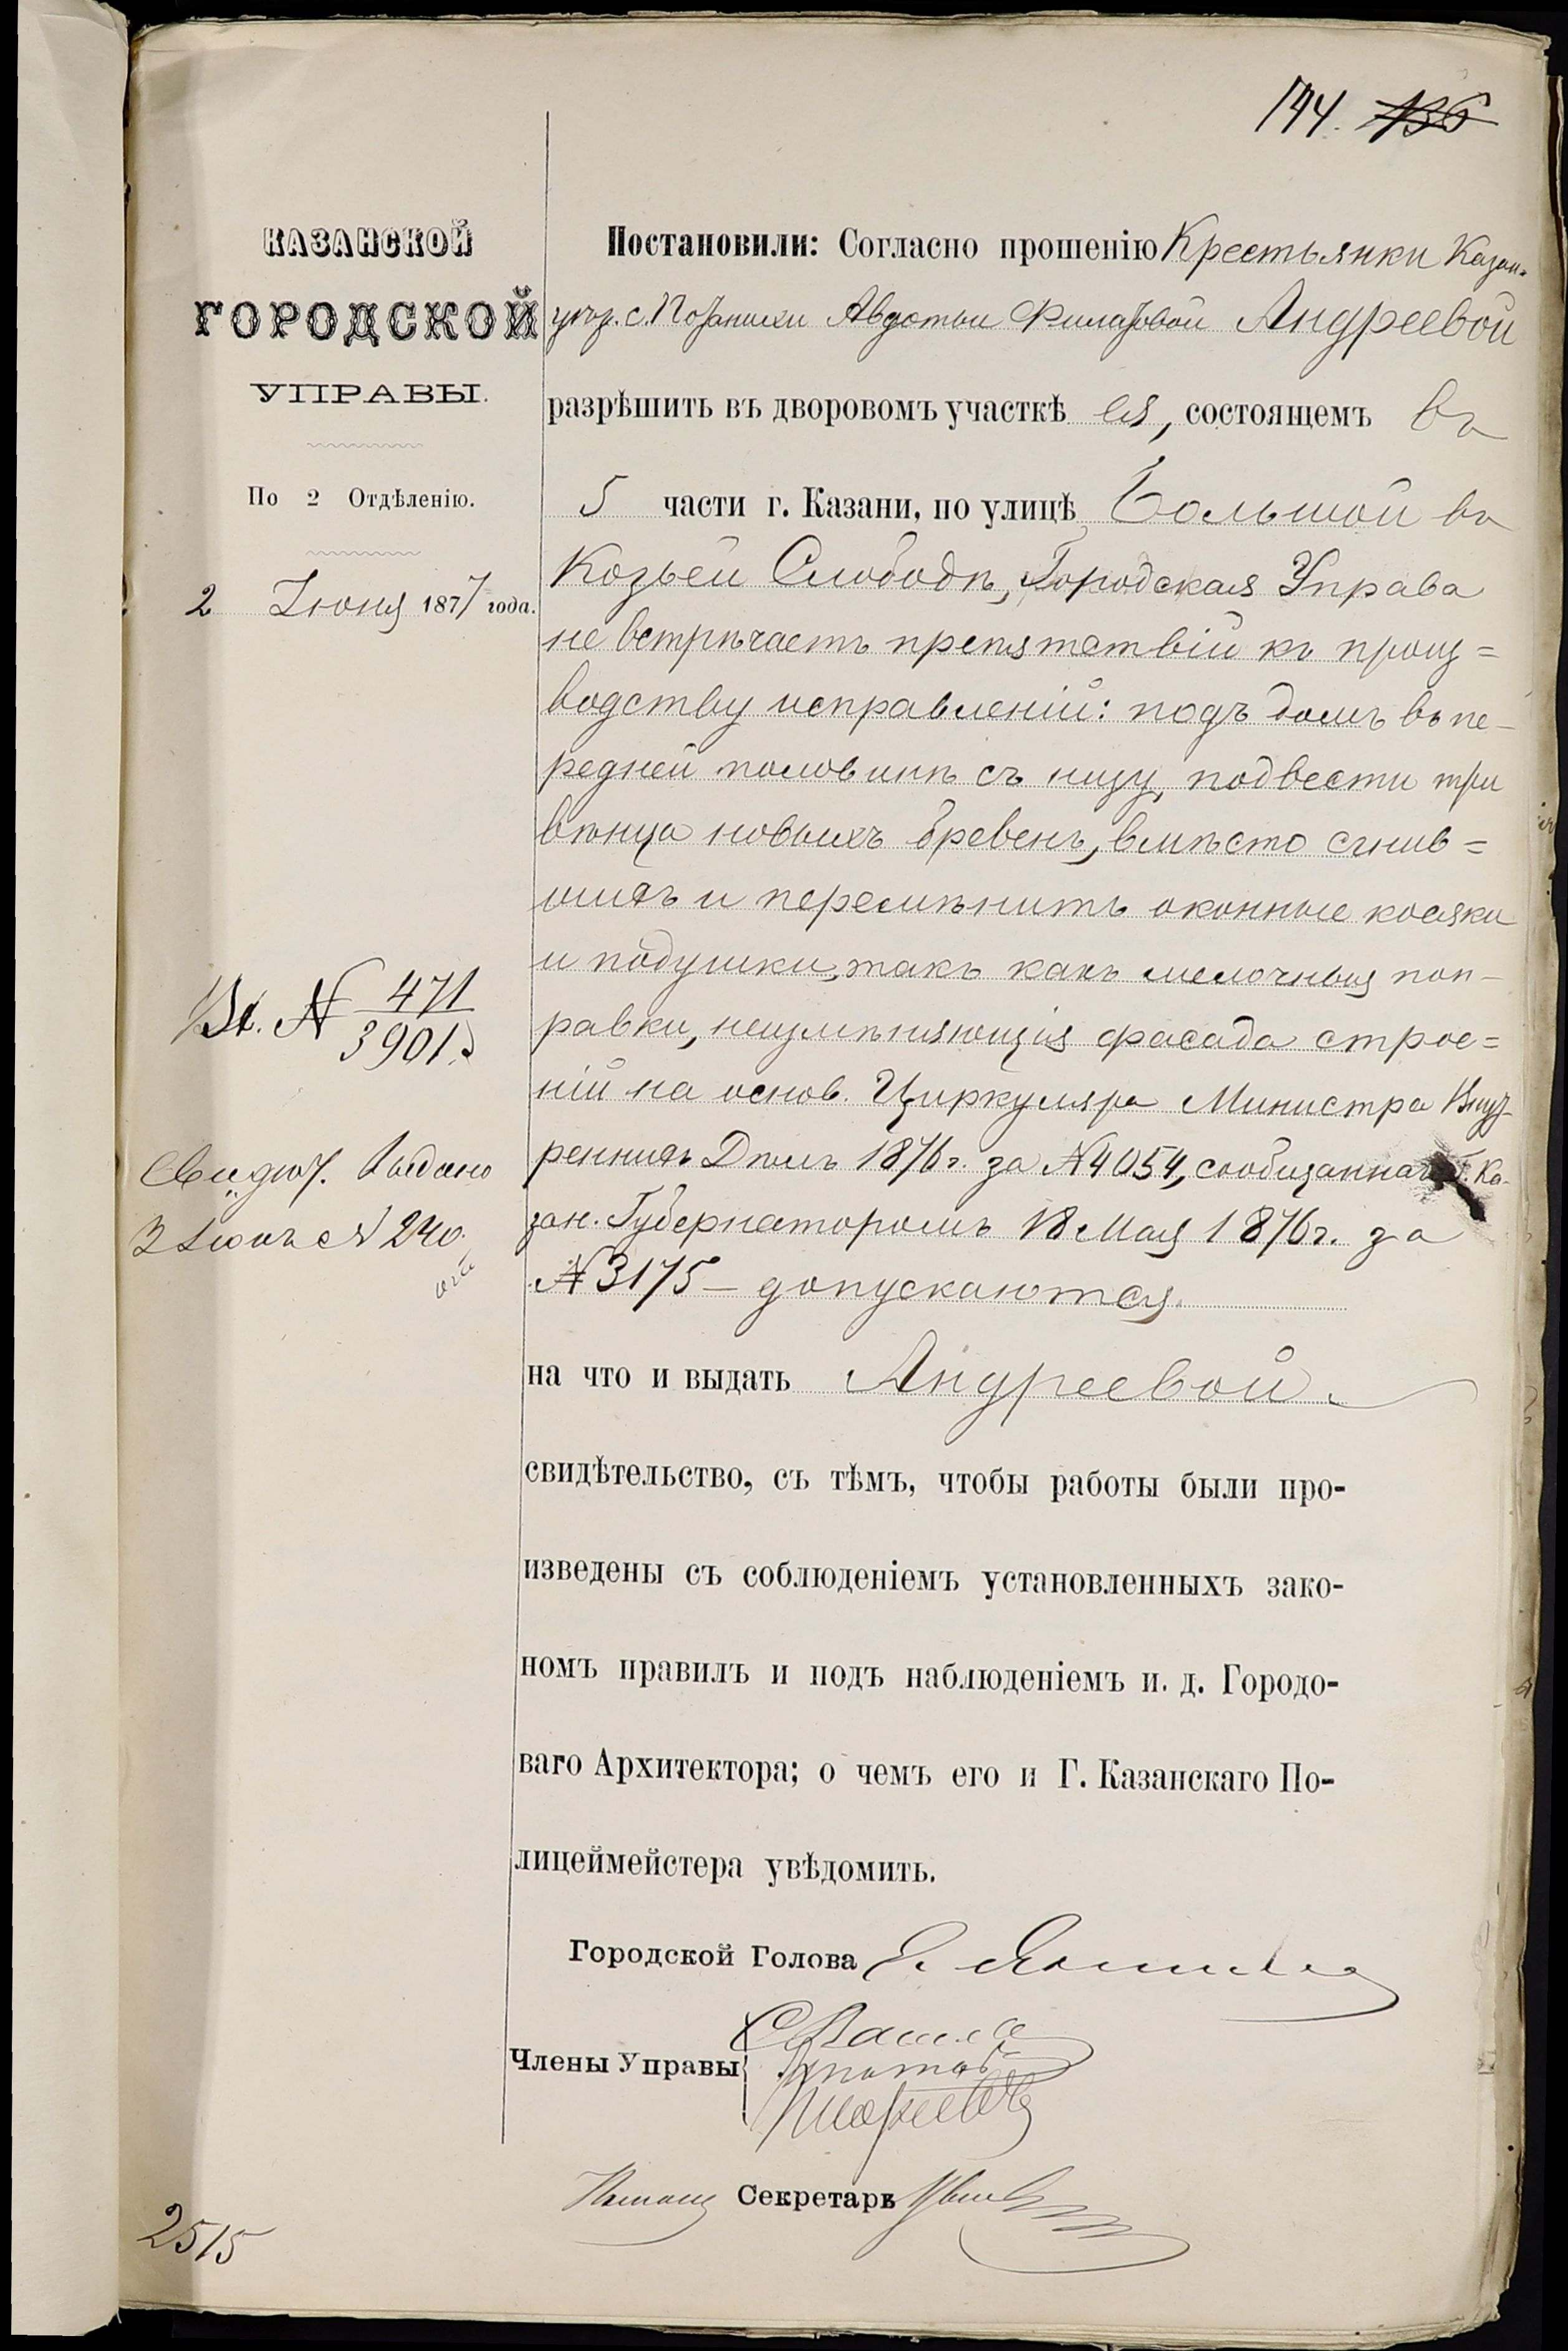 144. 136
КАЗАНСКОЙ
ГОРОДСКОЙ
УПРАВЫ.
По 2 Отдѣленію.
2 Іюня 1877 года.
Вх. № 471
3901
Свидѣт. выдано
3 Іюня № 240.
2515
Постановили: Согласно прошенію Крестьянки Казан.
уѣз. с. Авдотьи Филатовой Андреевой
разрѣшить въ дворовомъ участкѣ ея, состоящемъ въ
5 части г. Казани, по улицѣ Большой въ
Козьей Слободѣ, Городская Управа
не встрѣчаетъ препятствій къ произ=
водству исправленій: подъ домъ въ пе-
редней половинѣ съ низу, подвести три
вѣнца новыхъ бревенъ, вмѣсто сгнив=
шихъ и перемѣнить оконные косяки
и подушки, такъ какъ мелочныя поп-
равки, неизмѣняющія фасада строе=
ній на основ. Циркуляра Министра Внут-
реннихъ Дѣлъ 1876 г. за №4054, сообщаннаго Г. Ка-
зан. Губернаторомъ 18 Мая 1876 г. за
№3175 — допускаются.
на что и выдать Андреевой
свидѣтельство, съ тѣмъ, чтобы работы были про-
изведены съ соблюденіемъ установленныхъ зако-
номъ правилъ и подъ наблюденіемъ и. д. Городо-
ваго Архитектора; о чемъ его и Г. Казанскаго По-
лицеймейстера увѣдомить.
Городской Голова
Члены Управы
Секретарь